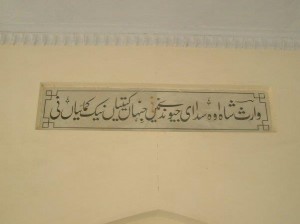 وارث شاہ اوہ سدا ای جیوندے نیں جنہاں کیتیاں نیک کمائیاں نی